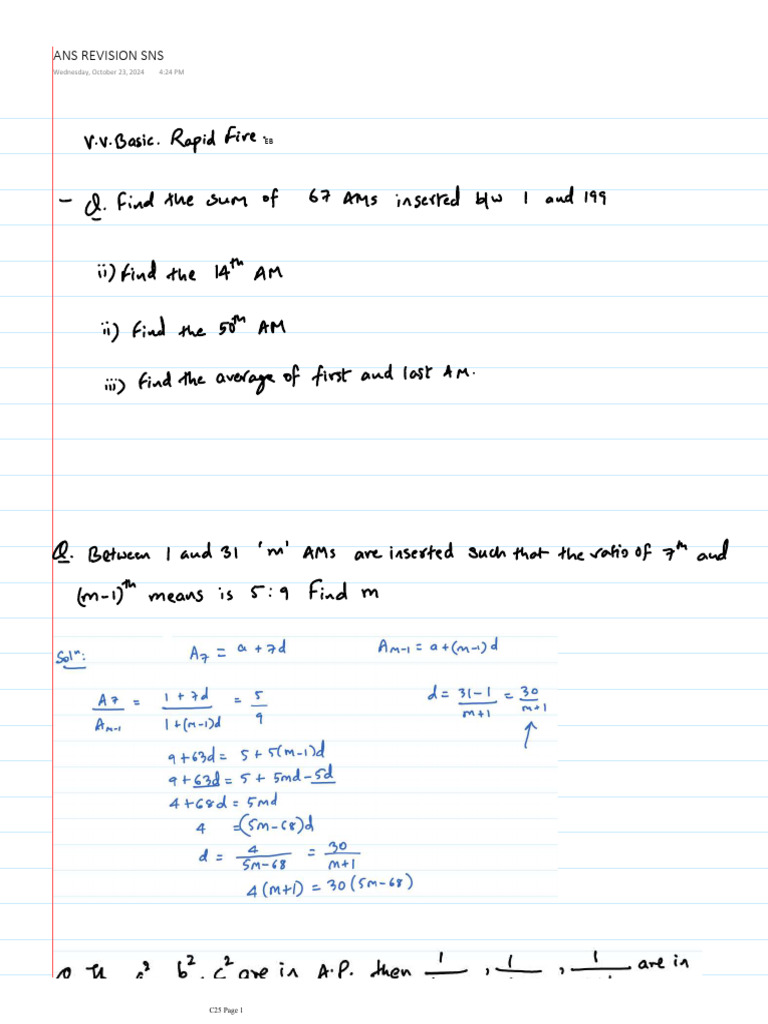 ANS REVISION SNS
Wednesday, October 23, 2024 4:24 PM
V.V.Basic. Rapid Fire.
- Q. Find the sum of 67 AMs inserted b/w 1 and 199
ii) Find the 14th AM
ii) Find the 50th AM
iii) Find the average of first and last AM.
Q. Between 1 and 31 'm' AMs are inserted such that the ratio of 7th and
(m-1)th means is 5:9 Find m
Soln: A7 = a + 7d Am-1 = a + (m-1)d
A7/Am-1 = (1 + 7d)/(1 + (m-1)d) = 5/9 d = (31-1)/(m+1) = 30/(m+1)
9 + 63d = 5 + 5(m-1)d
9 + 63d = 5 + 5md - 5d
4 + 68d = 5md
4 = (5m-68)d
d = 4/(5m-68) = 30/(m+1)
4(m+1) = 30(5m-68)
b², c² are in A.P. then 1/ , 1/ , 1/ are in
C25 Page 1